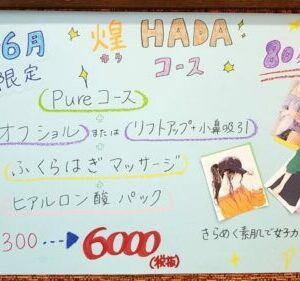 6月
限定
煌 HADA
キラ
コース
80
Pureコース
+
オフショル または リフトアップ+小鼻吸引
+
ふくらはぎマッサージ
+
ヒアルロン酸パック
300 → 6000
(税抜)
きらめく素肌で女子力